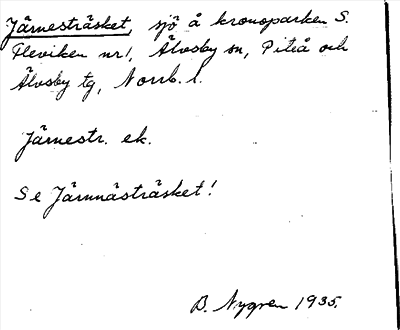 Järnesträsket, sjö å kronoparken S.
Fleviken nr 1, Älvsby sn, Piteå och
Älvsby tg, Norrb. l.
Järnestr. ek.
Se Järnnästräsket!
B. Nygren 1935.